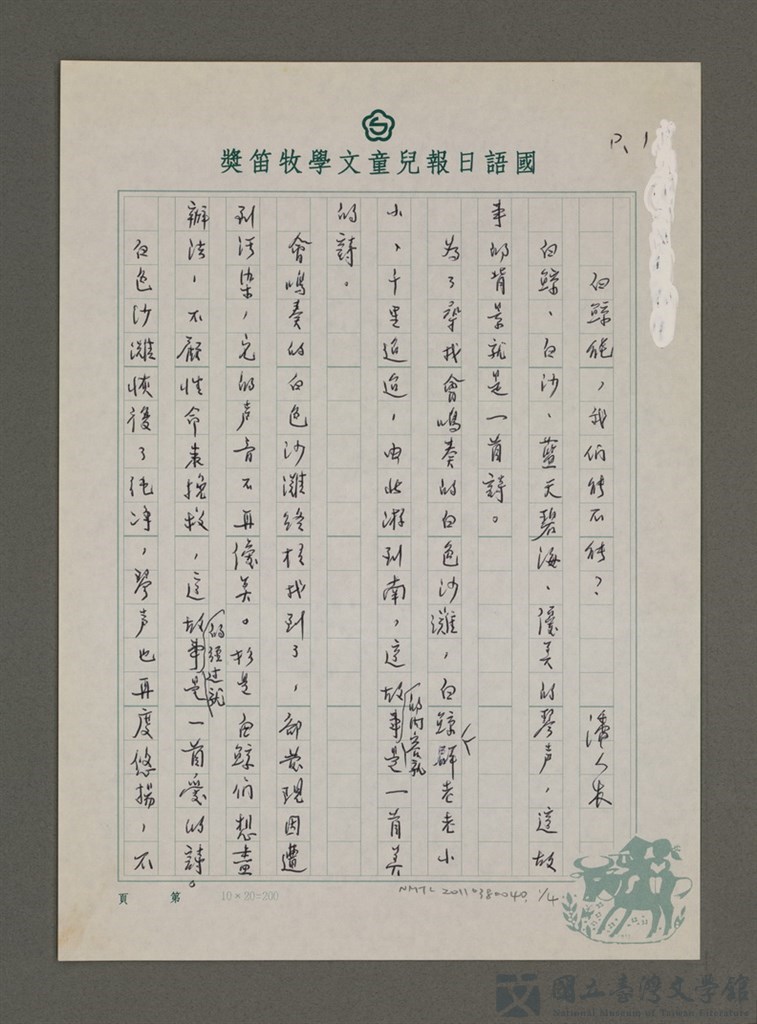 國語日報兒童文學牧笛獎
P.1
白鯨能，我們能不能？　潘人木
白鯨、白沙、藍天碧海、優美的琴声，這故
事的背景就是一首詩。
為了尋找會鳴奏的白色沙灘，白鯨群老老小
小，千里迢迢，由北游到南，這故事的內容就是一首美
的詩。
會鳴奏的白色沙灘終於找到了，卻發現因遭
到污染，它的声音不再優美。於是白鯨們想盡
辦法，不顧性命來挽救，這故事的經過就是一首愛的詩。
白色沙灘恢復了純淨，琴声也再度悠揚，不
第　頁
10×20=200
NMTL 20110380040, 1/4
國立臺灣文學館
National Museum of Taiwan Literature